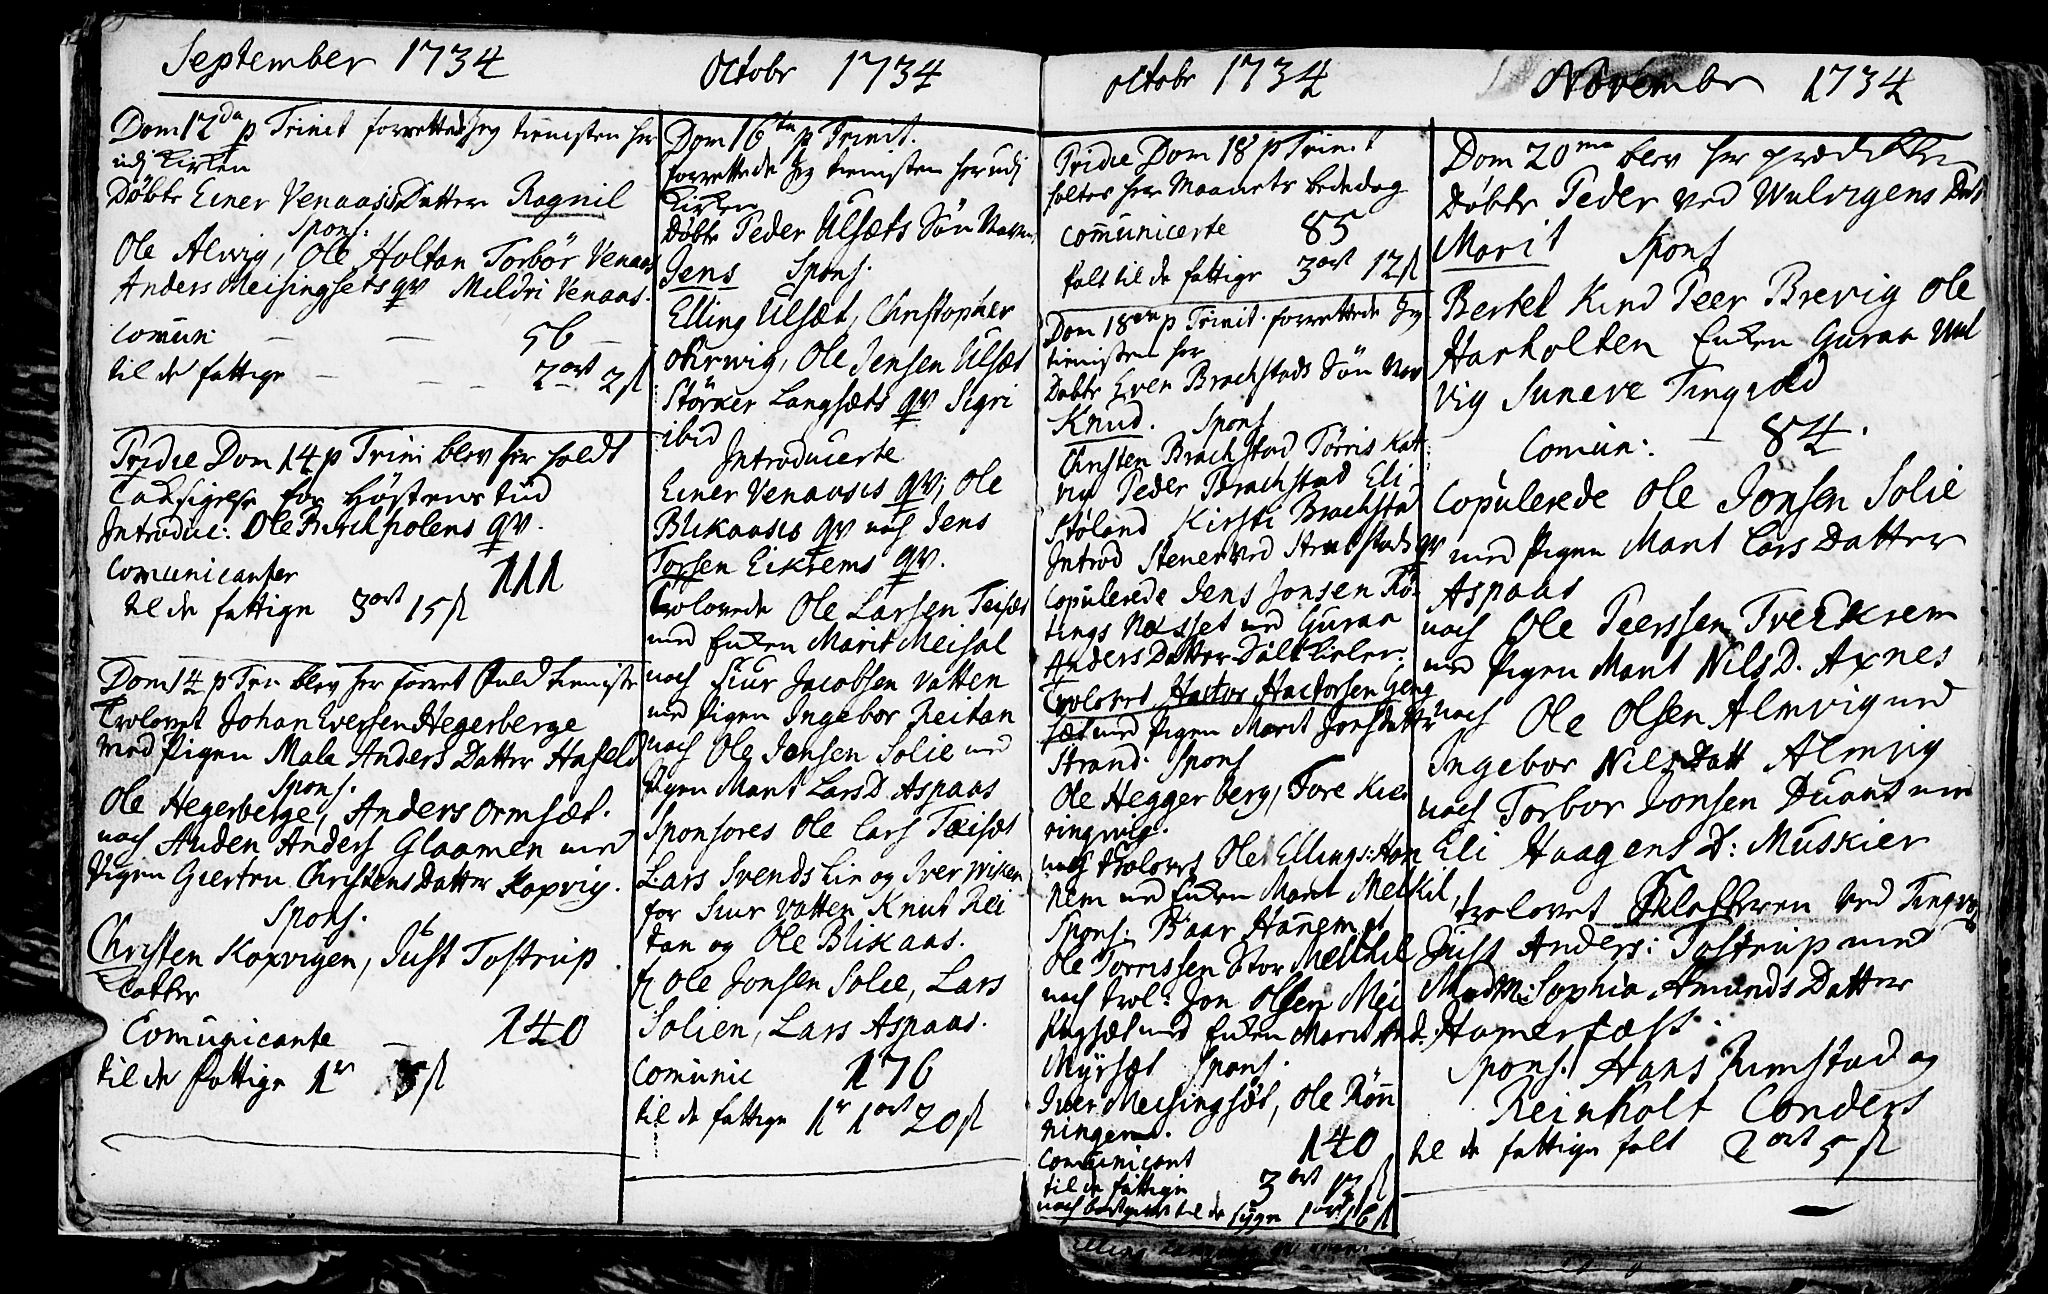 September 1734
Dom 12da p Trinit forrettede Jeg tienisten her
udj Kirken
Døbte Einer Venaasis Datter Ragnil
Spons.
Ole Alvig, Ole Holtan Torbör Venaas
Anders Meisingsets qv Mildri Venaas.
Comun: — — 56 —
til de fattige — — — 2 ort 2 sl
Pridie Dom 14 p Trini blev her holdt
Taksigelse for Høstens tiid
Introduc: Ole Birchholens qv.
Comunicanter 111
til de fattige 3 ort 15 sl
Dom 14 p Tri blev her forret fuld tieniste
Trolovet Johan Eversen Hegerberge
med Pigen Male Anders Datter Hafeld
Spons.
Ole Hegerberge, Anders Ormsæt.
noch Auden Anders Glaamen med
Pigen Giertru Christens Datter Koxvig.
Spons.
Christen Koxvigen, Just Tostrup
Comunicante — 140
til de fattige 1 r 5 sl
Octobr 1734
Dom 16ta p Trinit.
forrettede Jeg tienisten her udj
Kirken
Døbte Peder Ulsæts Sön Navn
Jens Spons.
Elling Ulsæt, Christopher
Ørwig, Ole Jensen Ulsæt
Störker Langsæts qv Sigri
ibid
Introducerte
Einer Venaasis qv; Ole
Blikaasis qv noch Jens
Torsen Eikrems qv.
Trolovede Ole Larsen Teisæt
med Enken Marit Meisal
noch Siur Jacobsen Vatten
med Pigen Ingebor Reitan
noch Ole Jonsen Solie med
Pigen Marit Lars D. Aspaas
Sponsores Ole Lars Teisæt
Lars Svends Lie og Iver Wiken
for Siur Vatten Knut Rei
tan og Ole Blikaas.
f Ole Jonsen Solie, Lars
Solien, Lars Aspaas.
Comunic 176
til de fattige 1 r 1 ort 20 sl
octobr 1734
Pridie Dom 18 p Trinit
holtes her Maanets bededag
Comunicerte 85
falt til de fattige 3 ort 12 sl
Dom 18va p Trinit. forrettede Jeg
tienisten her
Døbte Even Brachstads Sön Nav
Knud. Spons
Christen Brachstad Törris Kat
vig Peder Brachstad Eli
Stöland Kirsti Brachsta
Introd Stener ved Strabstads qv
Copulerede Jens Jonsen Rö
tings Næsset med Guraa
Anders Datter Sältkieler.
Trolovet Hactor Hactorsen Geng
sæt med Pigen Marit Jonsdatter
Strand. Spons
Ole Heggerberg, Tore Kie
ringvig.
noch trolovet Ole Ellings: Han
nem med Enken Marit Melkil
Spons: Baar Hanem, et
Ole Torrissen Stor Melkil
noch trol: Jon Olsen Mei
singsæt med Enken Marit And.
Myrsæt Spons.
Iver Meisingsöt, Ole Rönn
ningen.
Comunicant 140
til de fattige 3 ort 12 sl
noch til de syge 1 ort 16 sl
November 1734
Dom 20ma blev her prædiket
Døbte Peder ved Wulvigens Dat
Marit Spons
Bertel Kind Peer Brevig Ole
Harholten Enken Guraa Wul
vig Suneve Tingvold
Comun: — 84.
Copulerede Ole Jonsen Solie
med Pigen Marit Lars Datter
Aspaas
noch Ole Peerssen TverEkrem
med Pigen Marit Nils D. Axnes
noch Ole Olsen Almvig med
Ingebor Nils Datt Almvig
noch Torbor Jonsen Duaut med
Eli Haagens D: Muskier
trolovet Klokkeren ved Tingvo
Just Anders: Tostrup med
Madm: Sophia Amunds Datter
Hamerfæst.
Spons. Hans Rimstad og
Reinholt Conders
til de fattige falt 2 ort 5 sl